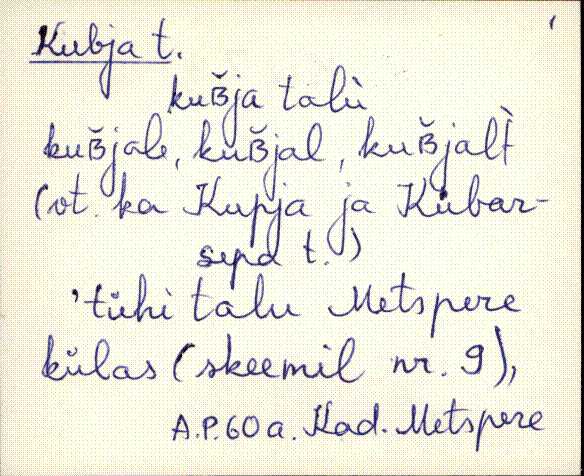 Kubja t.
kuʙ̆ja talù
kuʙ̆jale, kuʙ̆jal, kuʙ̆jalt̀
(vt. ka Kupja ja Kubar-
sepa t.)
'tühi talu Metspere
külas (skeemil nr. 9),
A.P. 60 a. Kad. Metspere